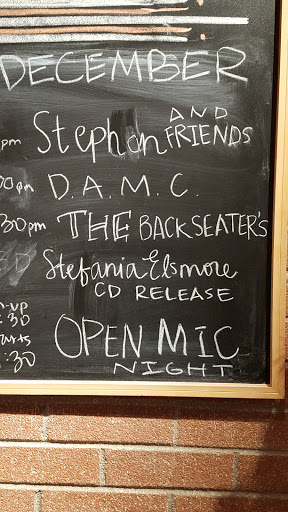 DECEMBER
pm Stephan AND FRIENDS
00pm D.A.M.C.
30pm THE BACKSEATER'S
Stefania Elsmore
CD RELEASE
n-up
:30
arts
:30
OPEN MIC
NIGHT